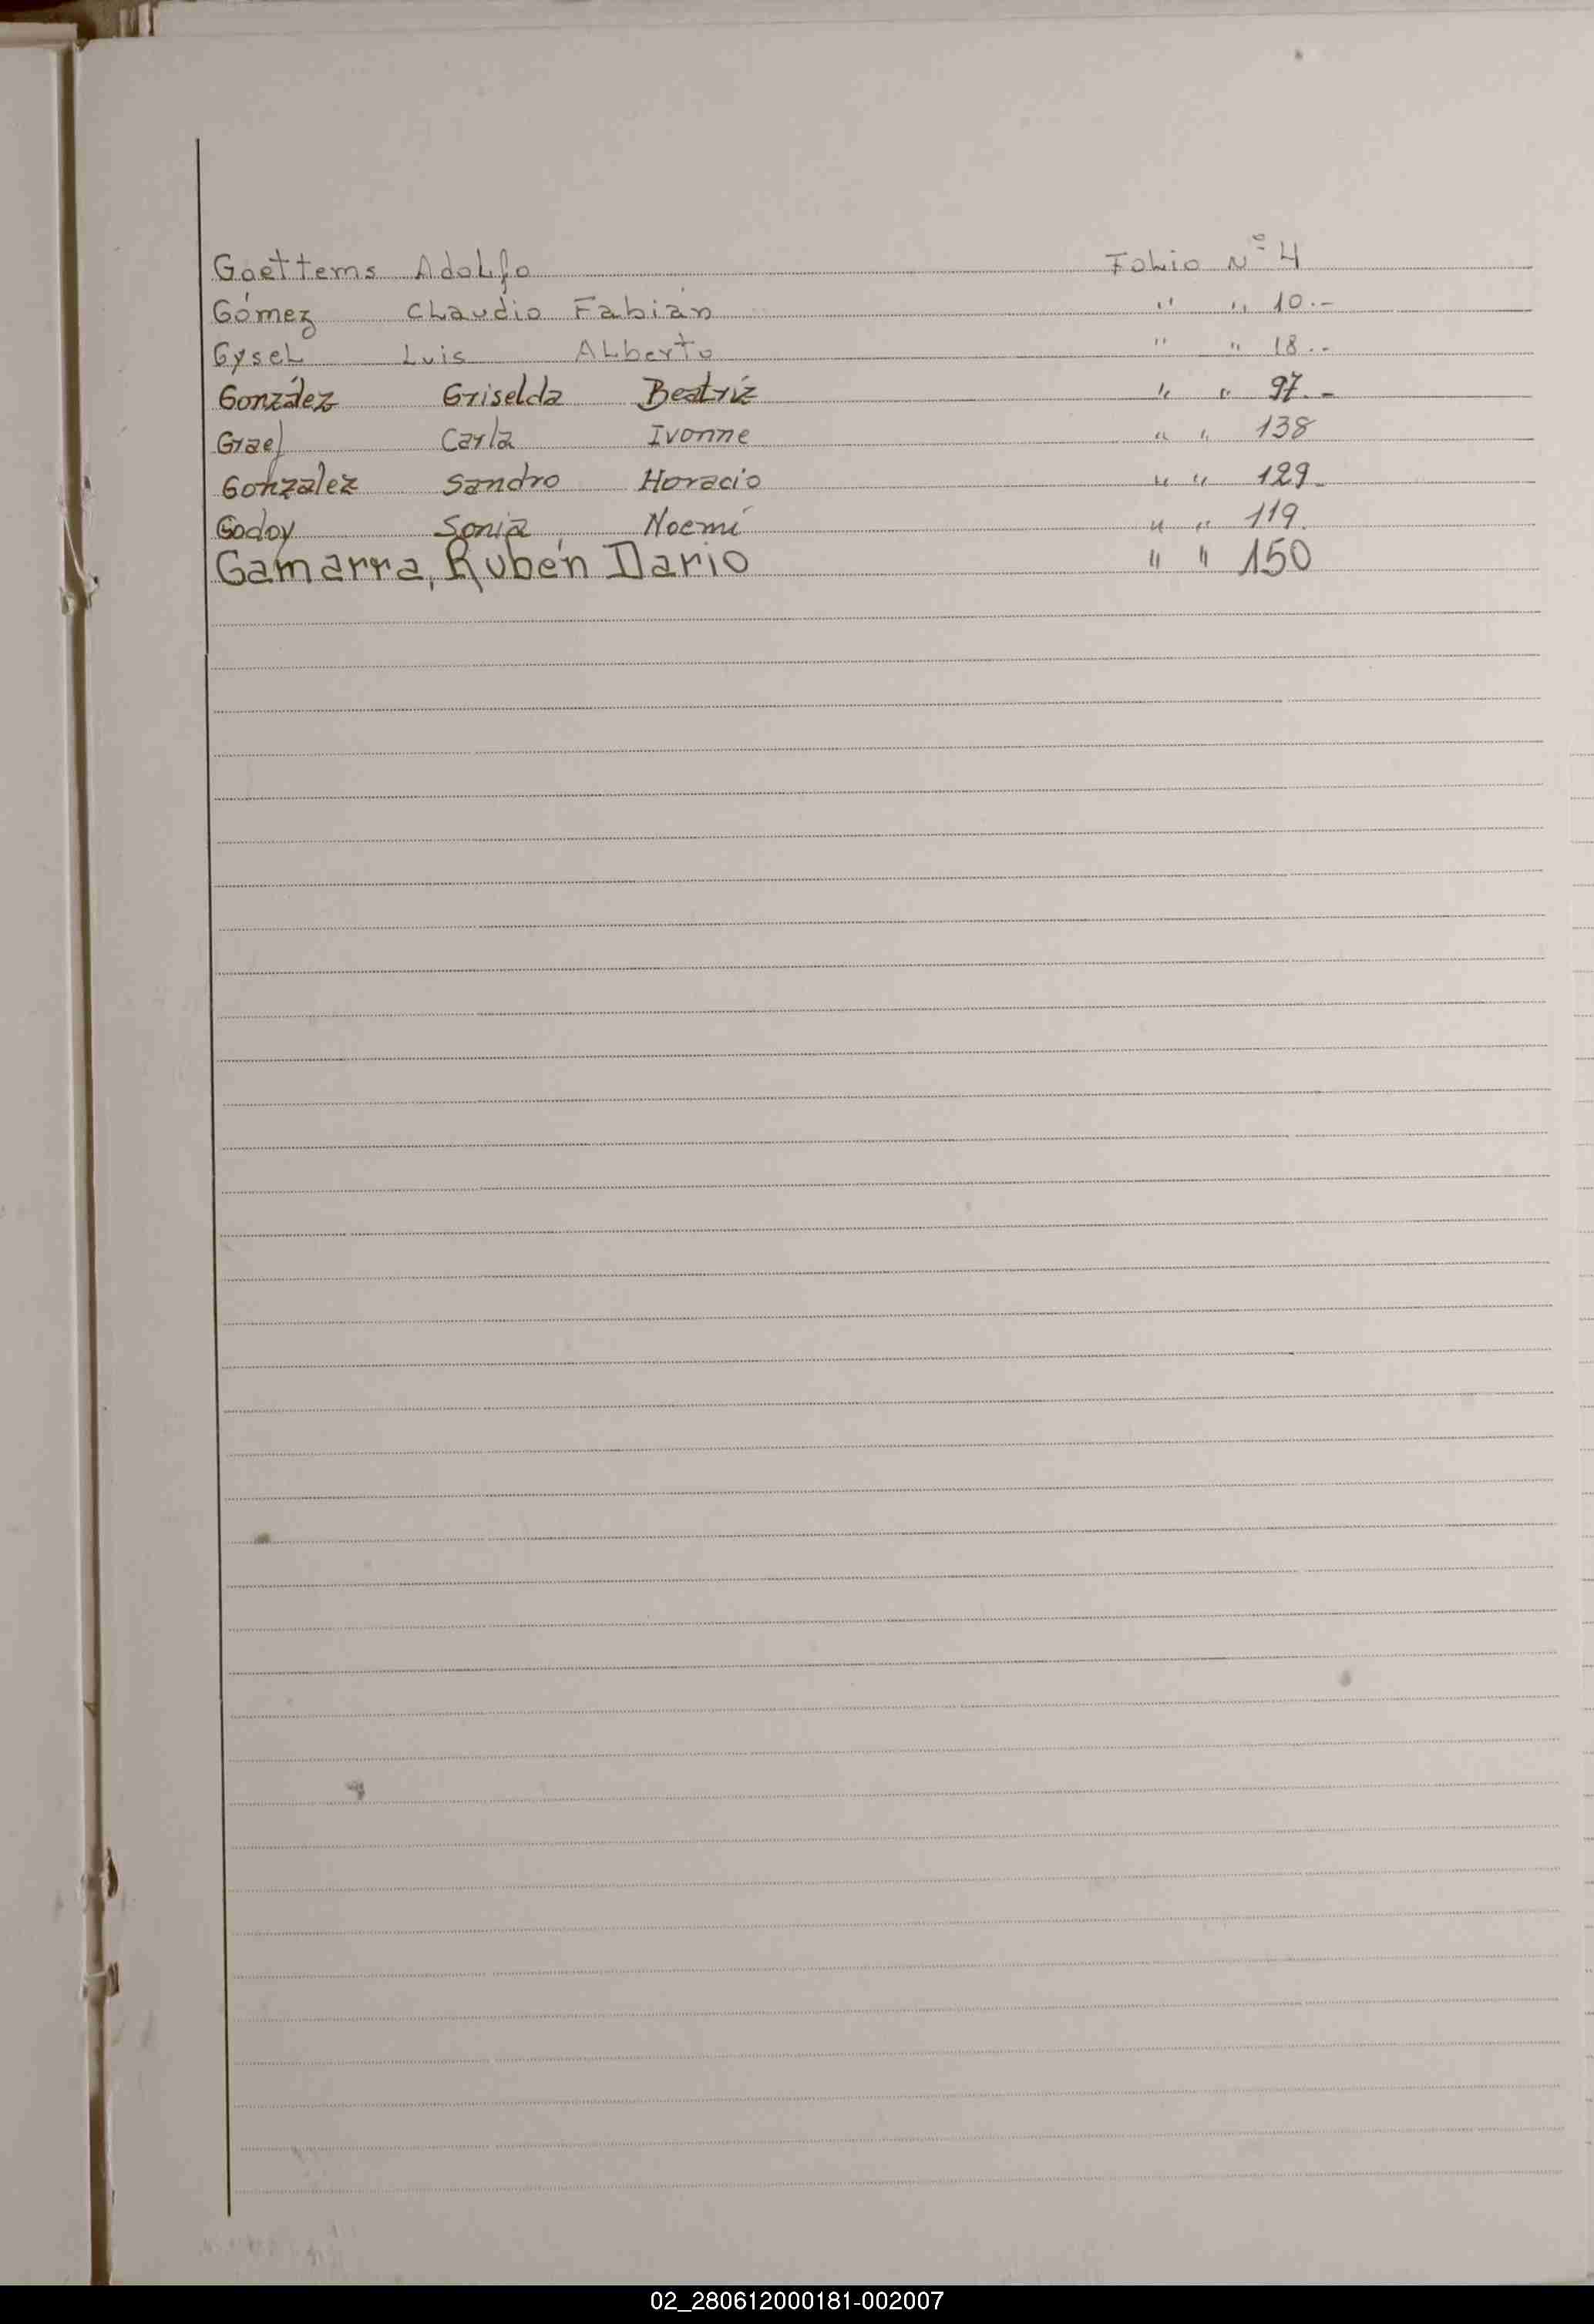 Goettems Adolfo Folio Nº 4
Gómez Claudio Fabián " " 10.-
Gysel Luis Alberto " " 18.-
González Griselda Beatríz " " 97.-
Graef Carla Ivonne " " 138
Gonzalez Sandro Horacio " " 129.
Godoy Sonia Noemí " " 119.
Gamarra, Rubén Dario " " 150
02_280612000181-002007